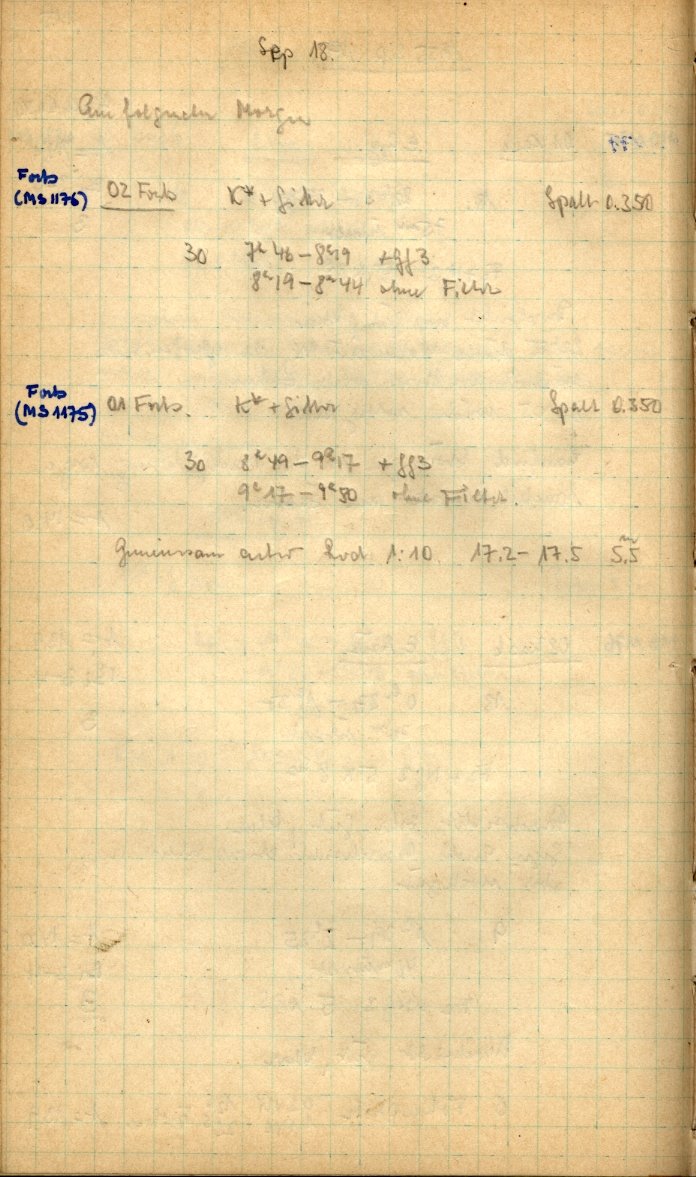 Sep 18.
Am folgenden Morgen
Forts
(MS 1176) 02 Forts K* + Gitter Spalt 0.350
30 7h 46 – 8h 19 + gf3
8h 19 – 8h 44 ohne Filter
Forts
(MS 1175) 01 Forts. K* + Gitter Spalt 0.350
30 8h 49 – 9h 17 + gf3
9h 17 – 9h 50 ohne Filter.
Gemeinsam entw Rod 1:10 17.2 – 17.5 5.5m